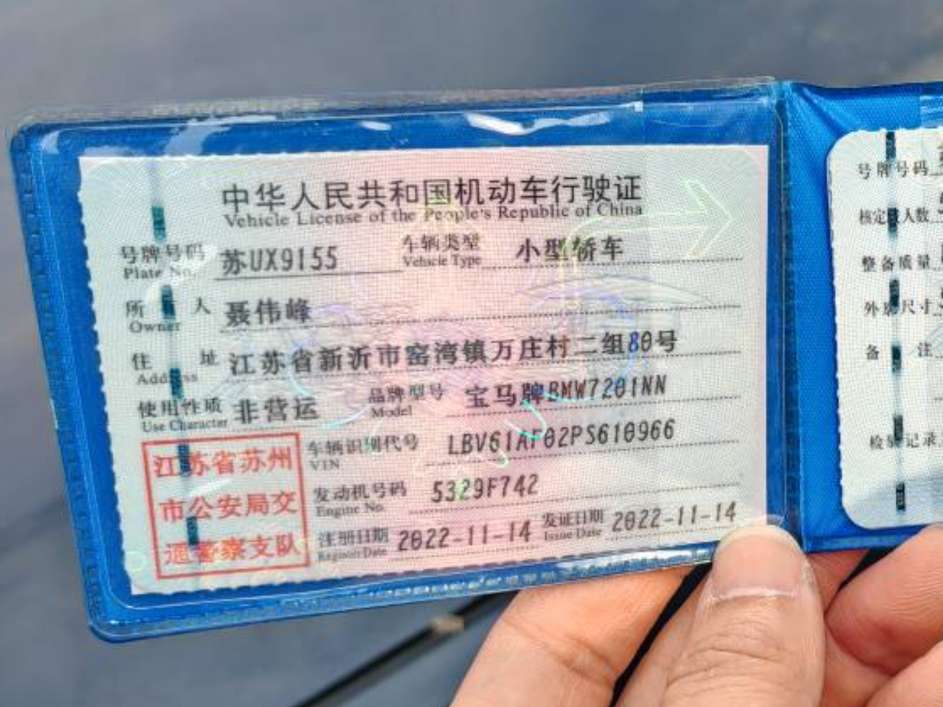 中华人民共和国机动车行驶证
Vehicle License of the People's Republic of China
号牌号码 苏UX9155 车辆类型 小型轿车
Plate No. Vehicle Type
所有人 聂伟峰
Owner
住址 江苏省新沂市窑湾镇万庄村二组80号
Address
使用性质 非营运 品牌型号 宝马牌BMW7201NN
Use Character Model
江苏省苏州
市公安局交
通警察支队
车辆识别代号 LBV61AF02PS610966
VIN
发动机号码 5329F742
Engine No.
注册日期 2022-11-14 发证日期 2022-11-14
Register Date Issue Date
号牌号码
核定载人数
整备质量
外廓尺寸
备注
检验记录